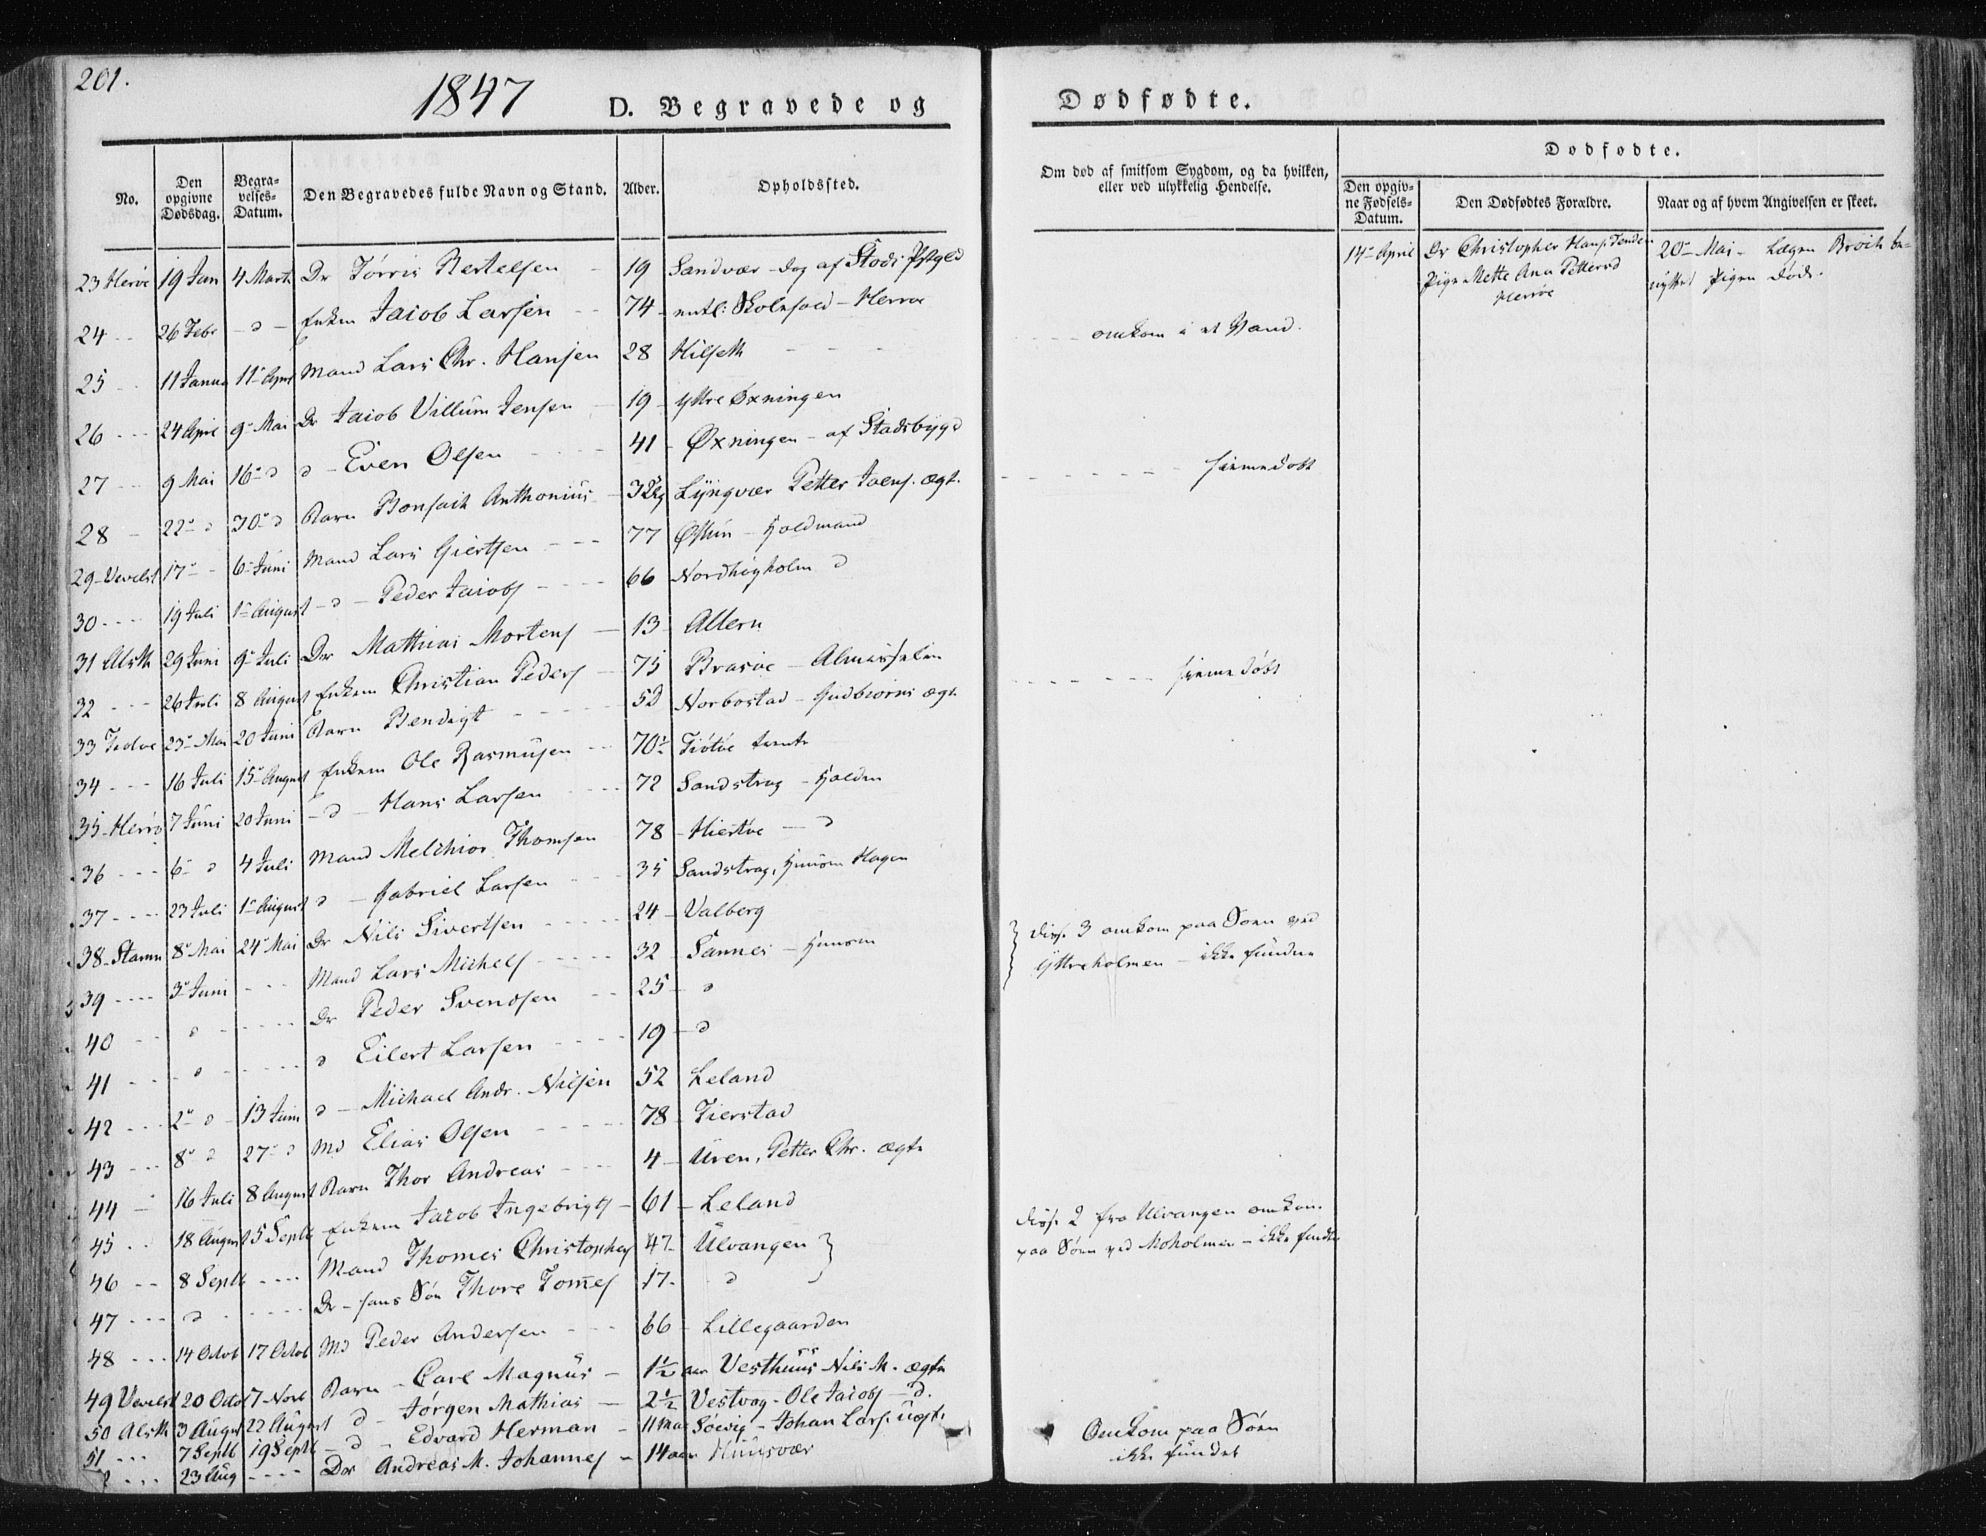 201.
1847
D. Begravede og
Dødfødte.
No.
Den opgivne Dødsdag.
Begravelses-Datum.
Den Begravedes fulde Navn og Stand.
Alder.
Opholdssted.
Om død af smitsom Sygdom, og da hvilken, eller ved ulykkelig Hendelse.
Dødfødte.
Den opgivne Fødsels-Datum.
Den Dødfødtes Forældre.
Naar og af hvem Angivelsen er skeet.
23 Herøe 19 Jan 4 Marts Dr Tørris Bertelsen - 19 Sandvær - dog af Stods
24 26 Febr - d - Enkem Jacob Larsen 74 - Herrøe
25 11 Janua 11 - Apri Mand Lars Chr. Hansen 28 Hilseth omkom i et Vand.
26 24 Apri 9 - Mai Dr Jacob Villum Jensen 19 - Yttre Øxningen
27 9 Mai 16 - d d - Even Olsen 41 - Øxningen - af Stadsbygd
28 22 - d 30 - d Barn Bonsach Anthonius Lyngvær Petter ægt. hiemedøbt
29 - Vevelst 17 - 6 - Juni Mand Lars Giertsen 77 - Holdmand
30 19 Juli 1 - August - d - Peder Jacobs 66 Nordhøyholm d
31 Alsth 29 Juni 9 - Juli Dr Mathias Mortens 13 - Altern
32 26 Juli 8 August Enkem Christian Peders 75 Brasøe -
33 23 - Mai 20 Juni Barn Bendigt 5d Norbostad - Gudbrorns ægt. hiemedøbt
34 16 Juli 15 - August Enkem Ole Rasmusen 70½ Tiøtøe
35 - Herrø 7 Juni 20 Juni - d - Hans Larsen 72 Sandstrag -
36 6 - d 4 Juli Mand Melchior Thomsen 78 - Hiertøe - d
37 23 Juli 1 - August d - Gabriel Larsen 35 Sandstrag, Huusm Hagen
38 - Stamn 8 - Mai 24 - Mai Dr Nils Sivertsen 24 - Valberg
39 3 - Juni Mand Lars Michels 32 - Sannes - Huusm
disse 3 omkom paa Søen ved
Yttreholmen - ikke fundne
40 d Dr Peder Svendsen 25 - d
41 d d Eilert Larsen 19 - d
42 2 - d 13 Juni d - Michael Andr. Nilsen 52 Leland
43 8 - d 27 - d Md Elias Olsen 78 - Tierstad
44 16 Juli 8 August Barn Thor Andreas 4 - Uren, Petter Chr. ægte
45 18 August 5 Septb Enkem Jacob Ingebrigts 61 - Leland
46 8 Septb Mand Thomes Christophes 47 - Ulvangen
47 d Dr - hans Søn Thore Tomes 17 - d
disse 2 fra Ulvangen omkom
paa Søen ved Moholmen - ikke fundn
48 14 Octob 17 Octob Md Peder Andersen 66 - Lillegaarden
49 Vevelst 20 Octo 7 Novb Barn - Carl Magnus - 1½ aar Vesthuus Nils M. ægte
50 Alsth 3 August 22 August d - Jørgen Mathias - 2½ Vestvog - Ole Jacobs - d.
51 7 Septb 19 Septb - d - Edvard Herman - 11 Søevig - Johan Lars. uægt.
23 Aug Dr Andreas M. Johannes - 14 aar Huusvær
Omkom paa Søen
ikke fundet
14 - April Dr Christopher Hans
Pige Mette Ana
Herrøe
20 - Mai -
Pigen død.